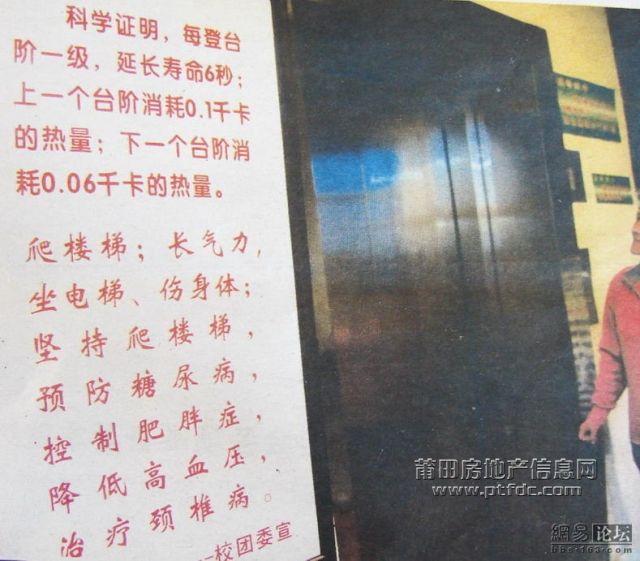 科学证明，每登台
阶一级，延长寿命6秒；
上一个台阶消耗0.1千卡
的热量；下一个台阶消
耗0.06千卡的热量。
爬楼梯；长气力，
坐电梯、伤身体；
坚持爬楼梯，
预防糖尿病，
控制肥胖症，
降低高血压，
治疗颈椎病。
--校团委宣
莆田房地产信息网
www.ptfdc.com
網易论坛
bbs.163.com